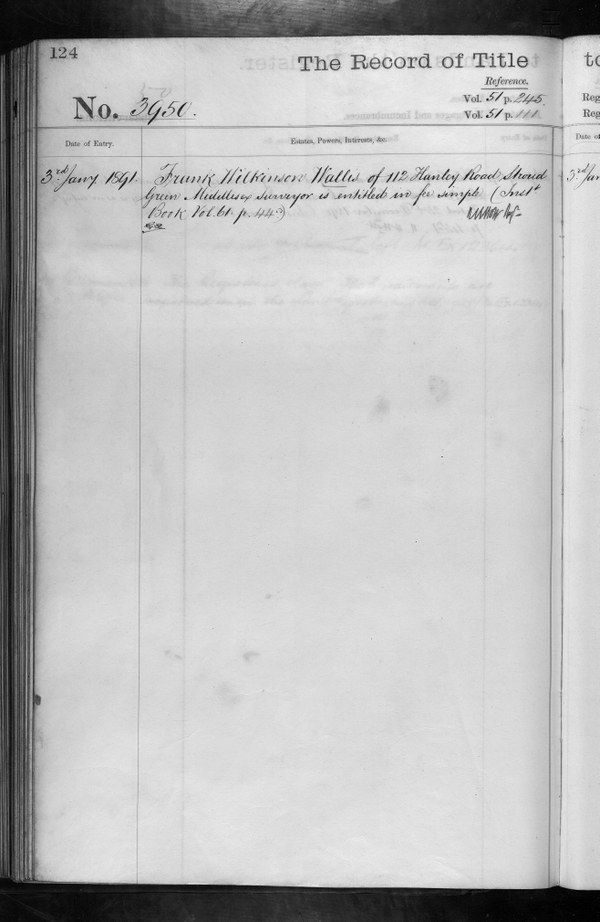 124
The Record of Title
Reference.
No. 3950.
Vol. 51 p. 245.
Vol. 51 p. 111.
Date of Entry.
Estates, Powers, Interests, &c.
3rd Jany 1891.
Frank Wilkinson Wallis of 112 Hanley Road, Stroud
Green Middlesex Surveyor is entitled in fee simple (Inst
Book Vol. 61. p. 443)
to
Reg
Reg
Date of
3rd Jan